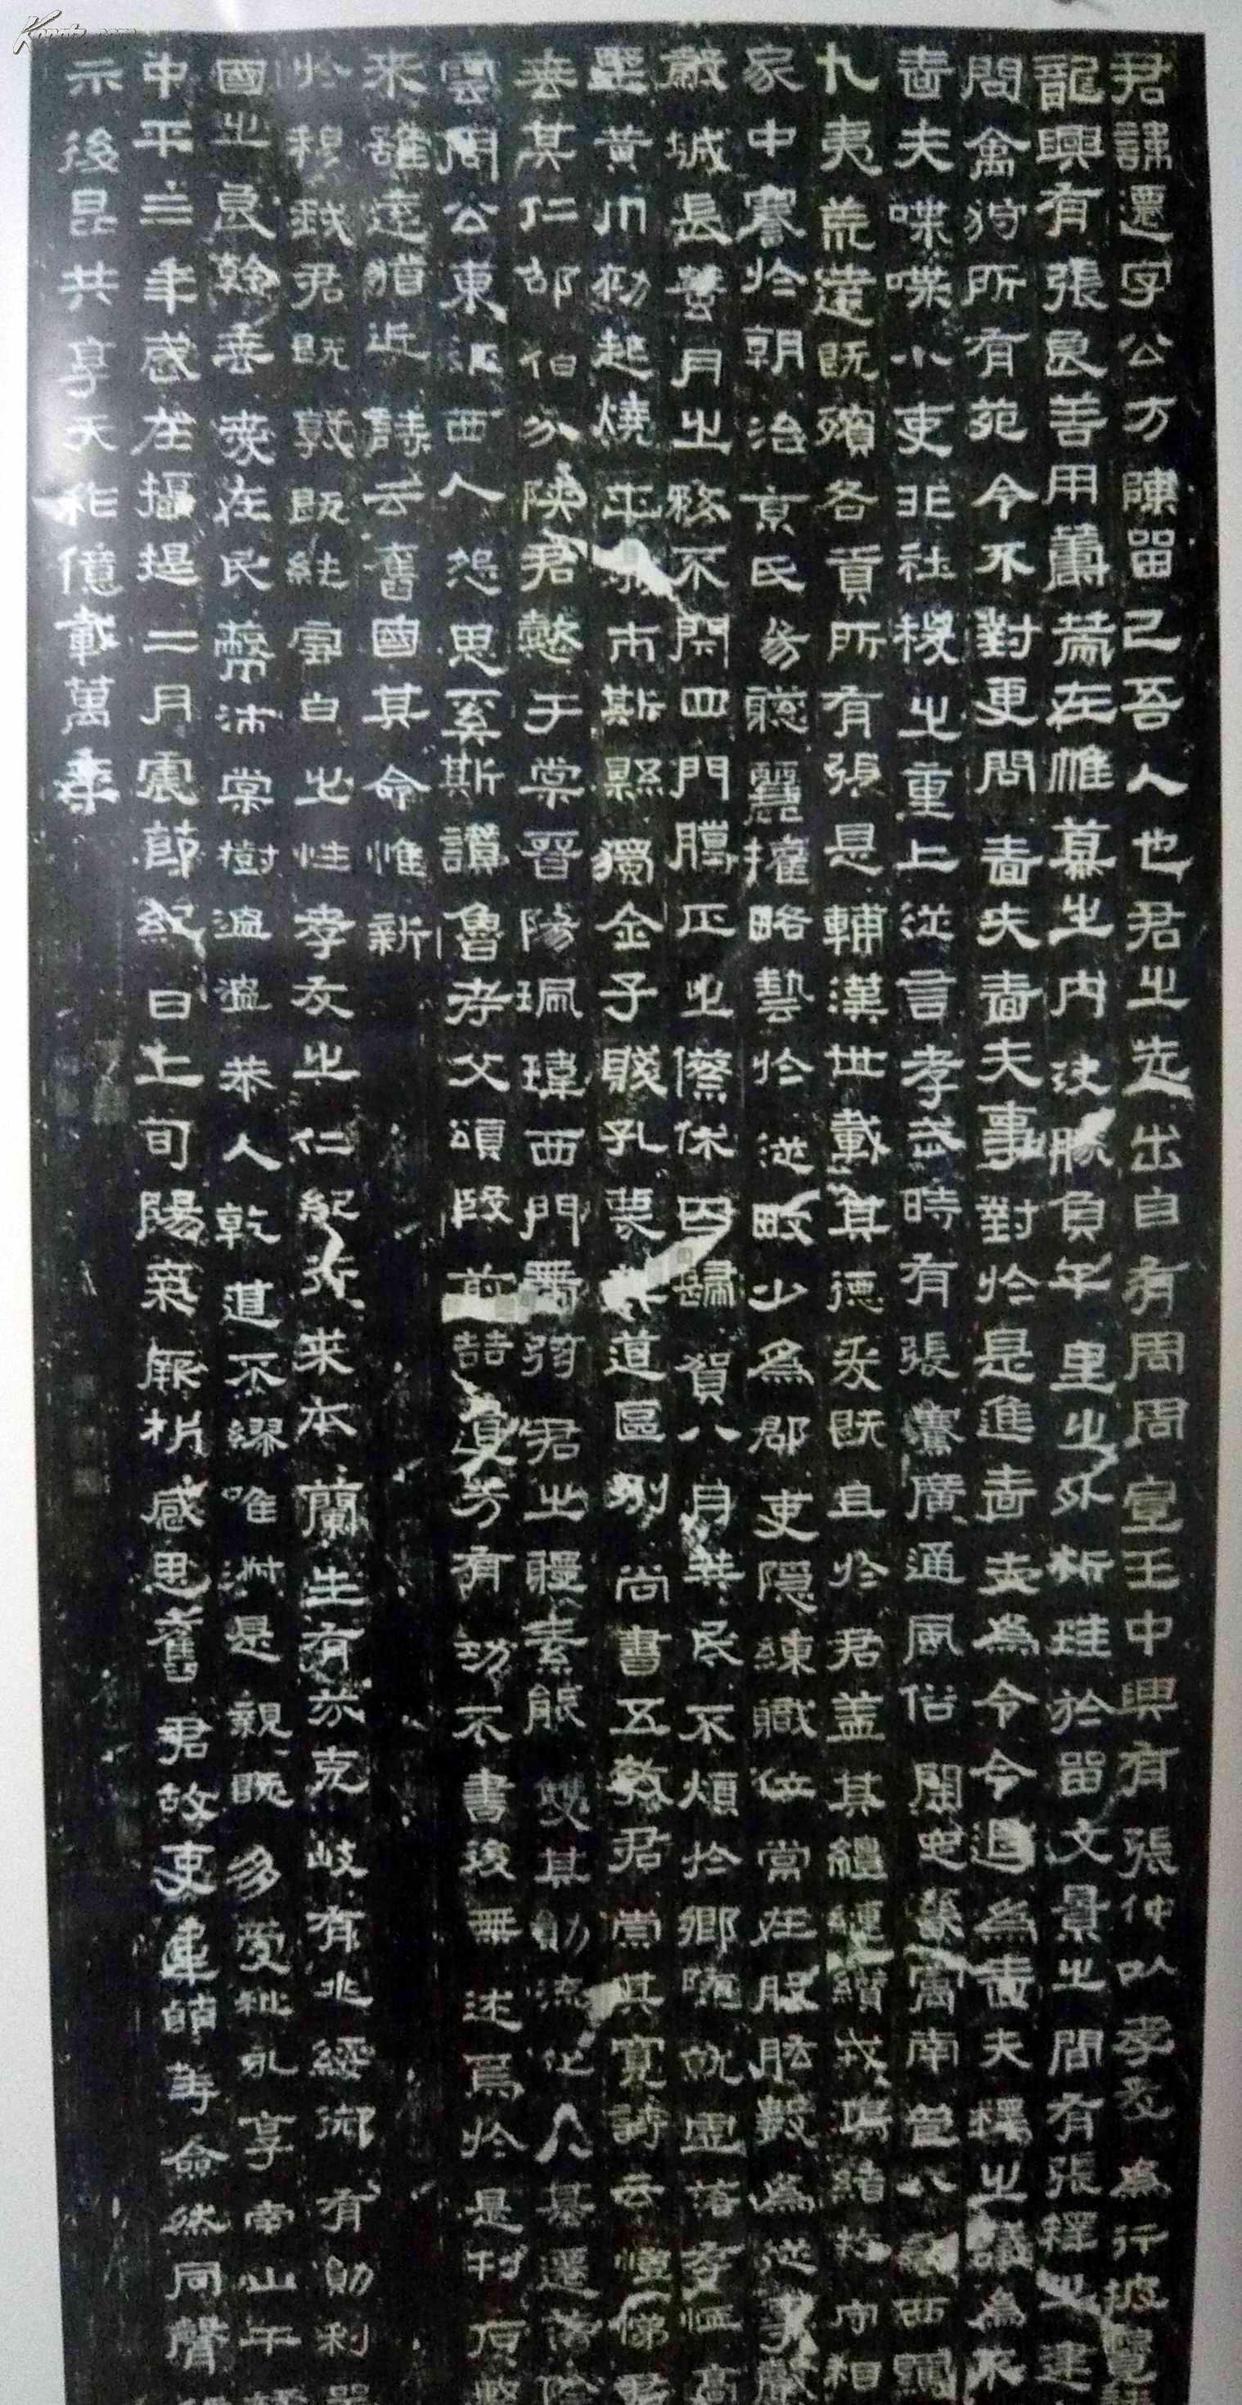 君諱遷字公方陳留己吾人也君之先出自有周周宣王中興有張仲以孝友為行披覽詩
龍興有張良善用籌策在帷幕之內決勝負千里之外析珪於留文景之間有張釋之建
問禽狩所有苑令不對更問嗇夫嗇夫事對於是進嗇夫為令令退為嗇夫釋之議為不
嗇夫喋喋小吏非社稷之重上從言孝武時有張騫廣通風俗開定畿寓南苞八蠻西羈
九夷荒遠既殯各貢所有張是輔漢世載其德爰既且於君蓋其繵縺纘戎鴻緒牧守相
家中謇於朝治京氏易聰麗權略藝於從畋少為郡吏隱練職位常在股肱數為從事聲
穀城長蠶月之務不閉四門臘正之僚休囚歸賀八月筭民不煩於鄉隨就虛落存恤高
野黃巾初起燒平城市斯縣獨全子賤孔蔑其道區別尚書五教君崇其寬詩云愷悌君
垂其仁邵伯分陝君懿于棠晉陽珮瑋西門帶弦君之體素能雙其勛流化八基遷蕩陰
雲周公東征西人怨思奚斯讚魯考父頌殷前喆遺芳有功不書後無述焉於是刊石竪
來雖遠猶近詩云舊國其命惟新
於穆我君既敦既純雪白之性孝友之仁紀行來本蘭生有芬克岐有兆綏御有勛利器
國之良幹垂愛在民蔽沛棠樹溫溫恭人乾道不繆唯淑是親既多受祉永享南山干祿
中平三年歲在攝提二月震節紀日上旬陽氣厥析感思舊君故吏韋萌等僉然同聲
示後昆共享天祚億載萬年